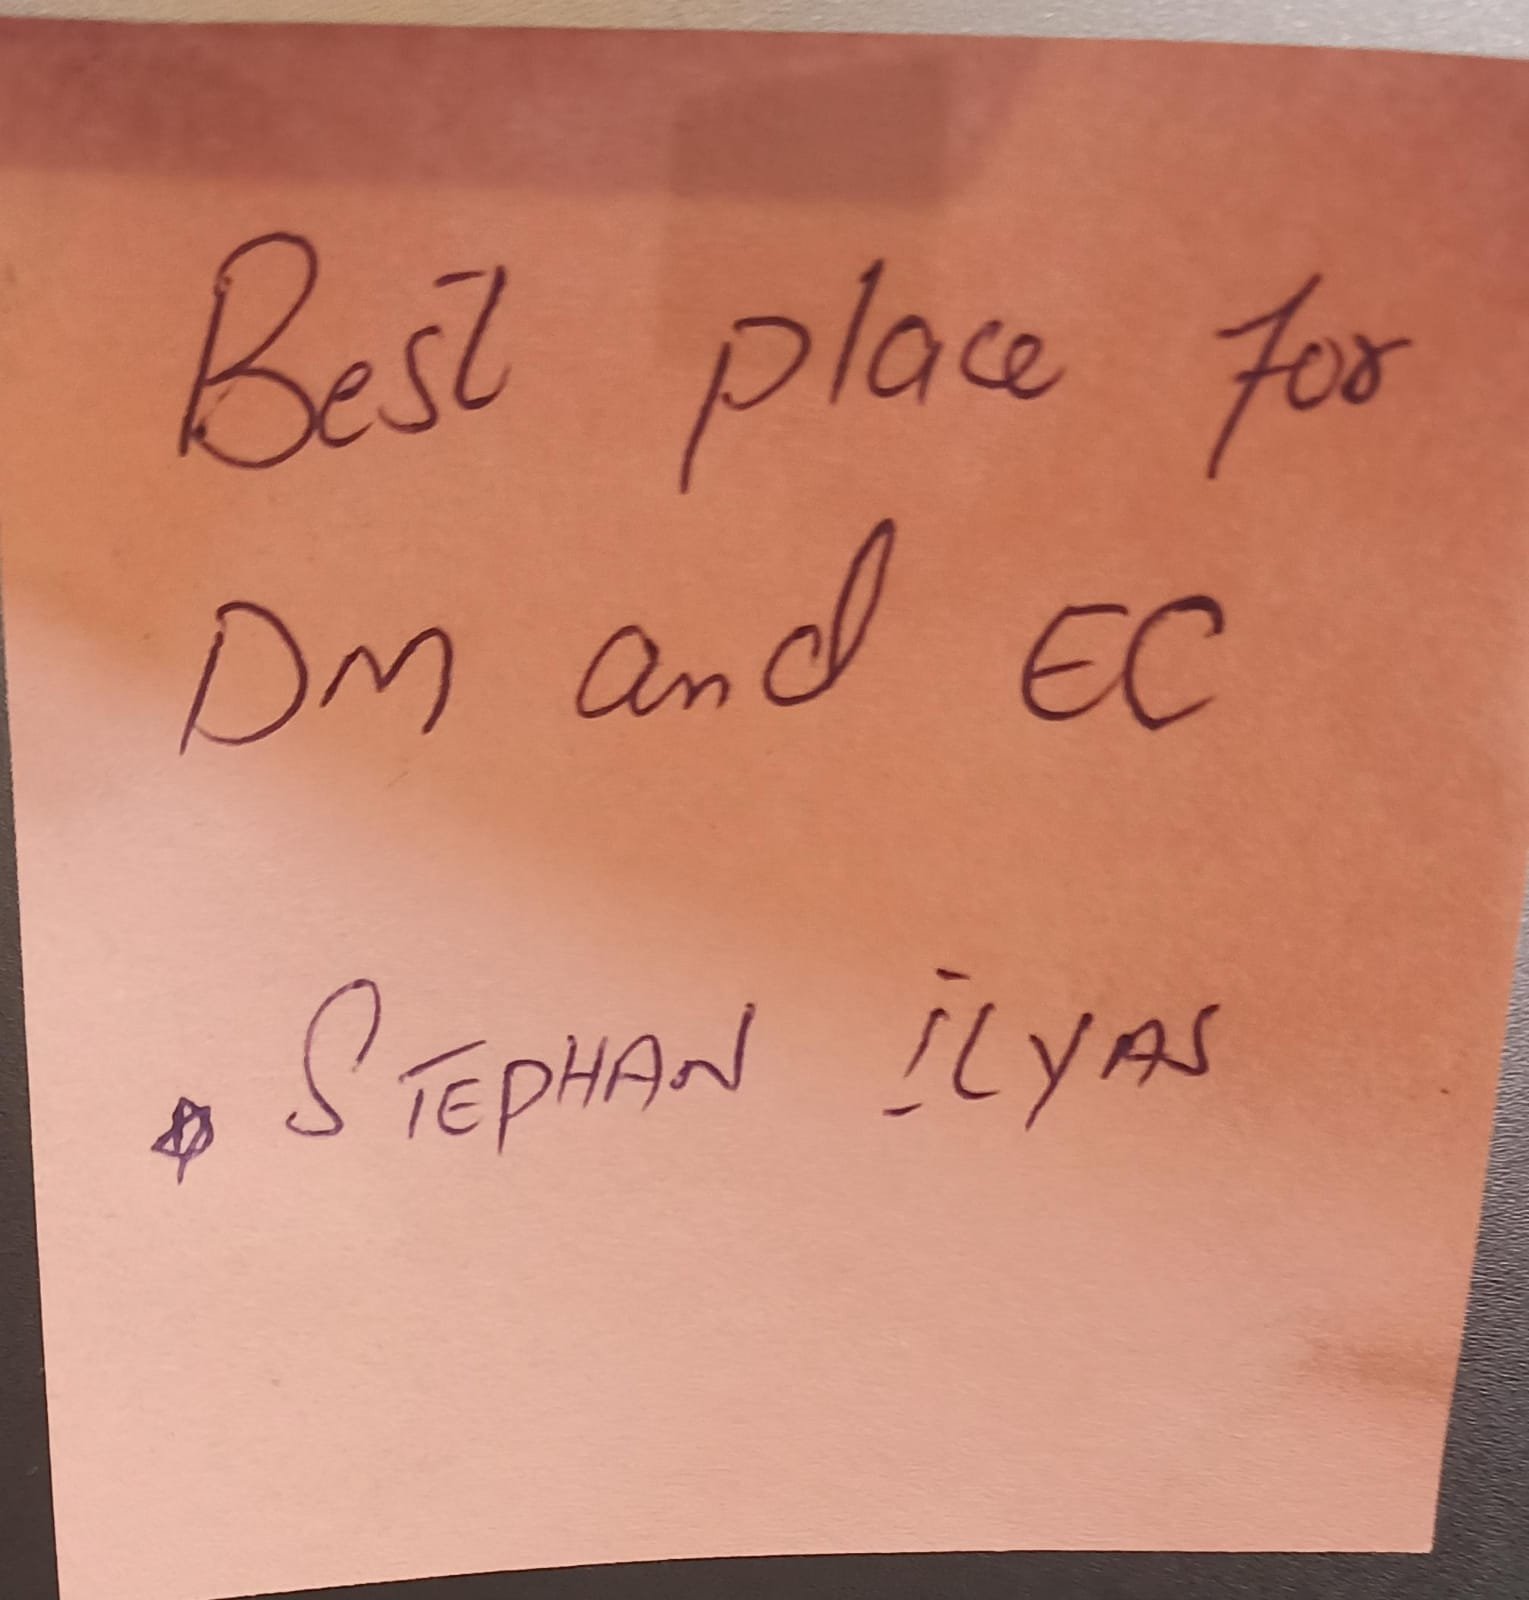 Best place for
DM and EC
STEPHAN ILYAS